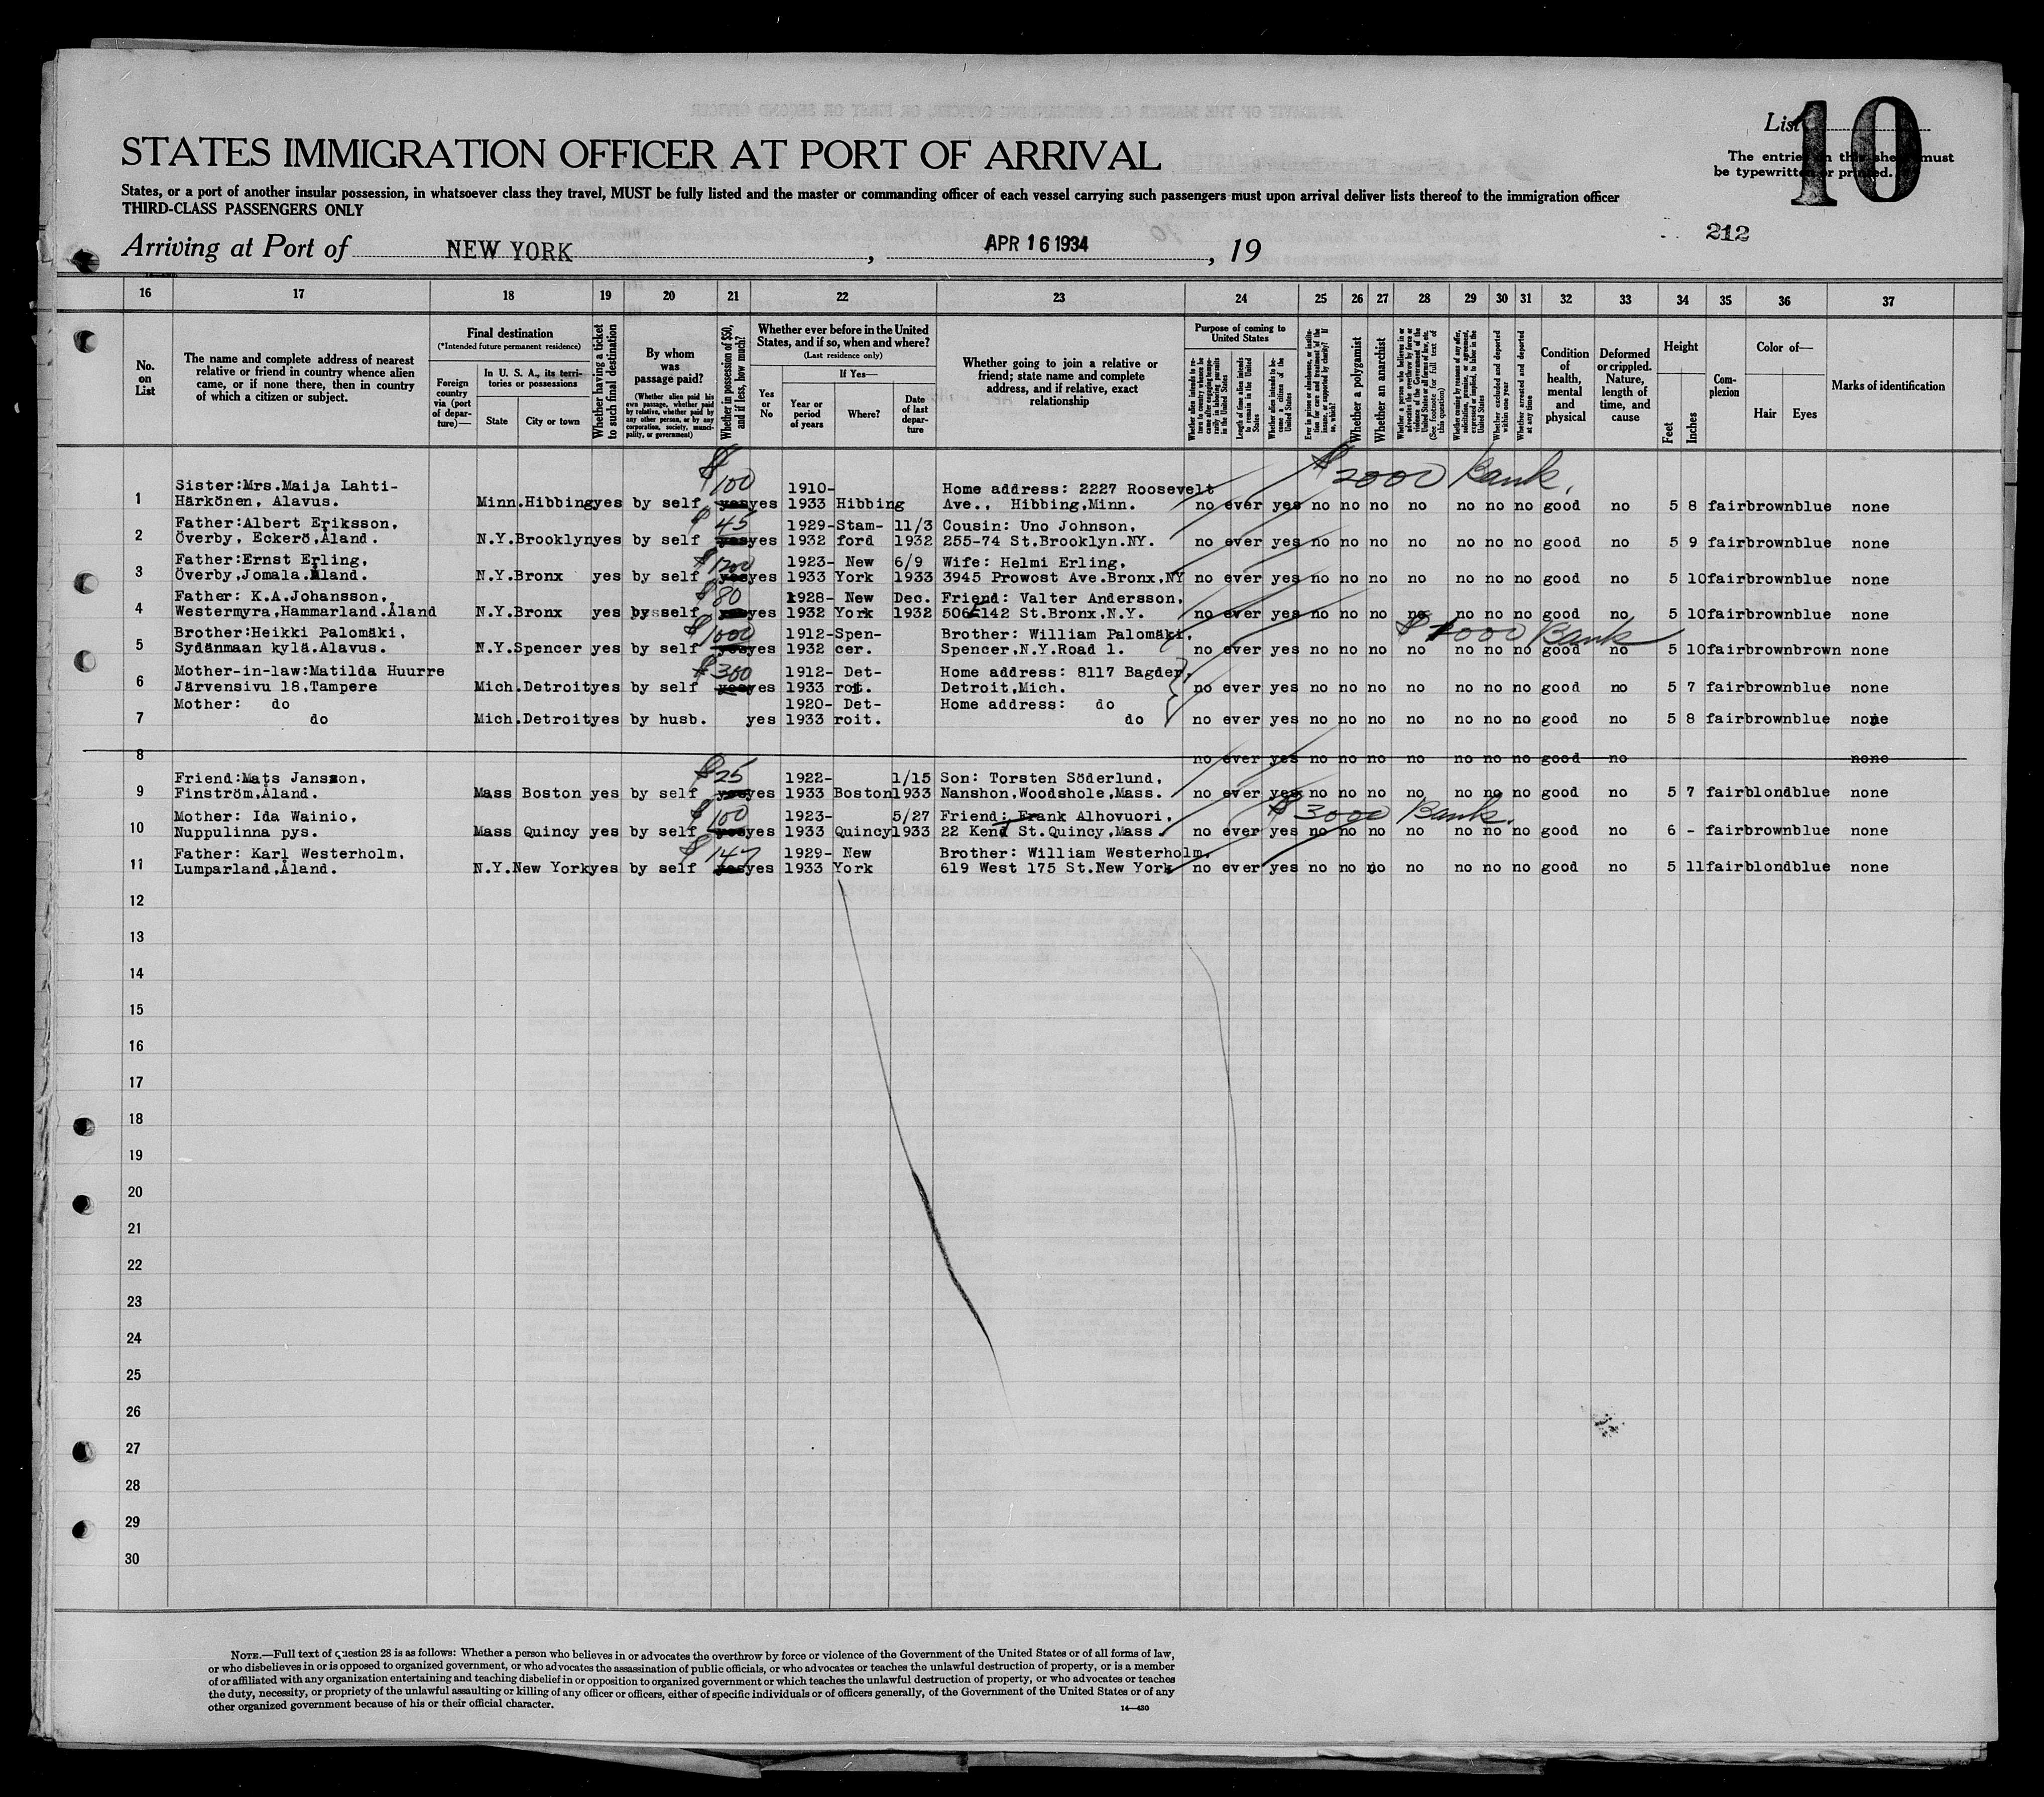 List 10
The entries on this sheet must
be typewritten or printed.
STATES IMMIGRATION OFFICER AT PORT OF ARRIVAL
States, or a port of another insular possession, in whatsoever class they travel, MUST be fully listed and the master or commanding officer of each vessel carrying such passengers must upon arrival deliver lists thereof to the immigration officer
THIRD-CLASS PASSENGERS ONLY
212
Arriving at Port of NEW YORK, APR 16 1934, 19
16 17 18 19 20 21 22 23 24 25 26 27 28 29 30 31 32 33 34 35 36 37
No. on List
The name and complete address of nearest relative or friend in country whence alien came, or if none there, then in country of which a citizen or subject.
Final destination
(*Intended future permanent residence)
Foreign country via (port of departure)—
In U. S. A., its territories or possessions
State
City or town
Whether having a ticket to such final destination
By whom was passage paid?
(Whether alien paid his own passage, whether paid by relative, whether paid by any other person, or by any corporation, society, municipality, or government)
Whether in possession of $50, and if less, how much?
Whether ever before in the United States, and if so, when and where?
(Last residence only)
Yes or No
If Yes—
Year or period of years
Where?
Date of last departure
Whether going to join a relative or friend; state name and complete address, and if relative, exact relationship
Purpose of coming to United States
Length of time alien intends to remain in the United States
Whether alien intends to become a citizen of the United States
Whether a polygamist
Whether an anarchist
Whether excluded and deported within one year
Whether arrested and deported at any time
Condition of health, mental and physical
Deformed or crippled. Nature, length of time, and cause
Height
Feet
Inches
Complexion
Color of—
Hair
Eyes
Marks of identification
$100 $2000 Bank.
Sister:Mrs.Maija Lahti- 1910- Home address: 2227 Roosevelt
1 Härkönen, Alavus. Minn.Hibbing yes by self yes yes 1933 Hibbing Ave., Hibbing,Minn. no ever yes no no no no no no no good no 5 8 fair brown blue none
Father:Albert Eriksson, $45 1929- Stam- 11/3 Cousin: Uno Johnson,
2 Överby, Eckerö,Åland. N.Y.Brooklyn yes by self yes yes 1932 ford 1932 255-74 St.Brooklyn.NY. no ever yes no no no no no no no good no 5 9 fair brown blue none
Father:Ernst Erling, $1200 1923- New 6/9 Wife: Helmi Erling,
3 Överby,Jomala.Åland. N.Y.Bronx yes by self yes yes 1933 York 1933 3945 Prowost Ave.Bronx,NY no ever yes no no no no no no no good no 5 10 fair brown blue none
Father: K.A.Johansson, $80 1928- New Dec. Friend: Valter Andersson,
4 Westermyra,Hammarland.Åland N.Y.Bronx yes by self yes yes 1932 York 1932 506E142 St.Bronx,N.Y. no ever yes no no no no no no no good no 5 10 fair brown blue none
Brother:Heikki Palomäki, $1000 1912- Spen- Brother: William Palomäki, Bank
5 Sydänmaan kylä.Alavus. N.Y.Spencer yes by self yes yes 1932 cer. Spencer,N.Y.Road 1. no ever yes no no no no no no no good no 5 10 fair brown brown none
Mother-in-law:Matilda Huurre $300 1912- Det- Home address: 8117 Bagder,
6 Järvensivu 18,Tampere Mich.Detroit yes by self yes yes 1933 roit. Detroit,Mich. no ever yes no no no no no no no good no 5 7 fair brown blue none
Mother: do 1920- Det- Home address: do
7 do Mich.Detroit yes by husb. yes 1933 roit. do no ever yes no no no no no no no good no 5 8 fair brown blue none
8 no ever yes no no no no no no no good no none
Friend:Mats Jansson, $25 1922- 1/15 Son: Torsten Söderlund,
9 Finström,Åland. Mass Boston yes by self yes yes 1933 Boston 1933 Nanshon,Woodshole,Mass. no ever yes no no no no no no no good no 5 7 fair blond blue none
Mother: Ida Wainio, $100 1923- 5/27 Friend: Frank Alhovuori, $3000 Bank.
10 Nuppulinna pys. Mass Quincy yes by self yes yes 1933 Quincy 1933 22 Kend St.Quincy,Mass. no ever yes no no no no no no no good no 6 - fair brown blue none
Father: Karl Westerholm, $147 1929- New Brother: William Westerholm,
11 Lumparland,Åland. N.Y.New York yes by self yes yes 1933 York 619 West 175 St.New York no ever yes no no no no no no no good no 5 11 fair blond blue none
12
13
14
15
16
17
18
19
20
21
22
23
24
25
26
27
28
29
30
NOTE.—Full text of question 28 is as follows: Whether a person who believes in or advocates the overthrow by force or violence of the Government of the United States or of all forms of law,
or who disbelieves in or is opposed to organized government, or who advocates the assassination of public officials, or who advocates or teaches the unlawful destruction of property, or is a member
of or affiliated with any organization entertaining and teaching disbelief in or opposition to organized government or which teaches the unlawful destruction of property, or who advocates or teaches
the duty, necessity, or propriety of the unlawful assaulting or killing of any officer or officers, either of specific individuals or of officers generally, of the Government of the United States or of any
other organized government because of his or their official character.
14—430